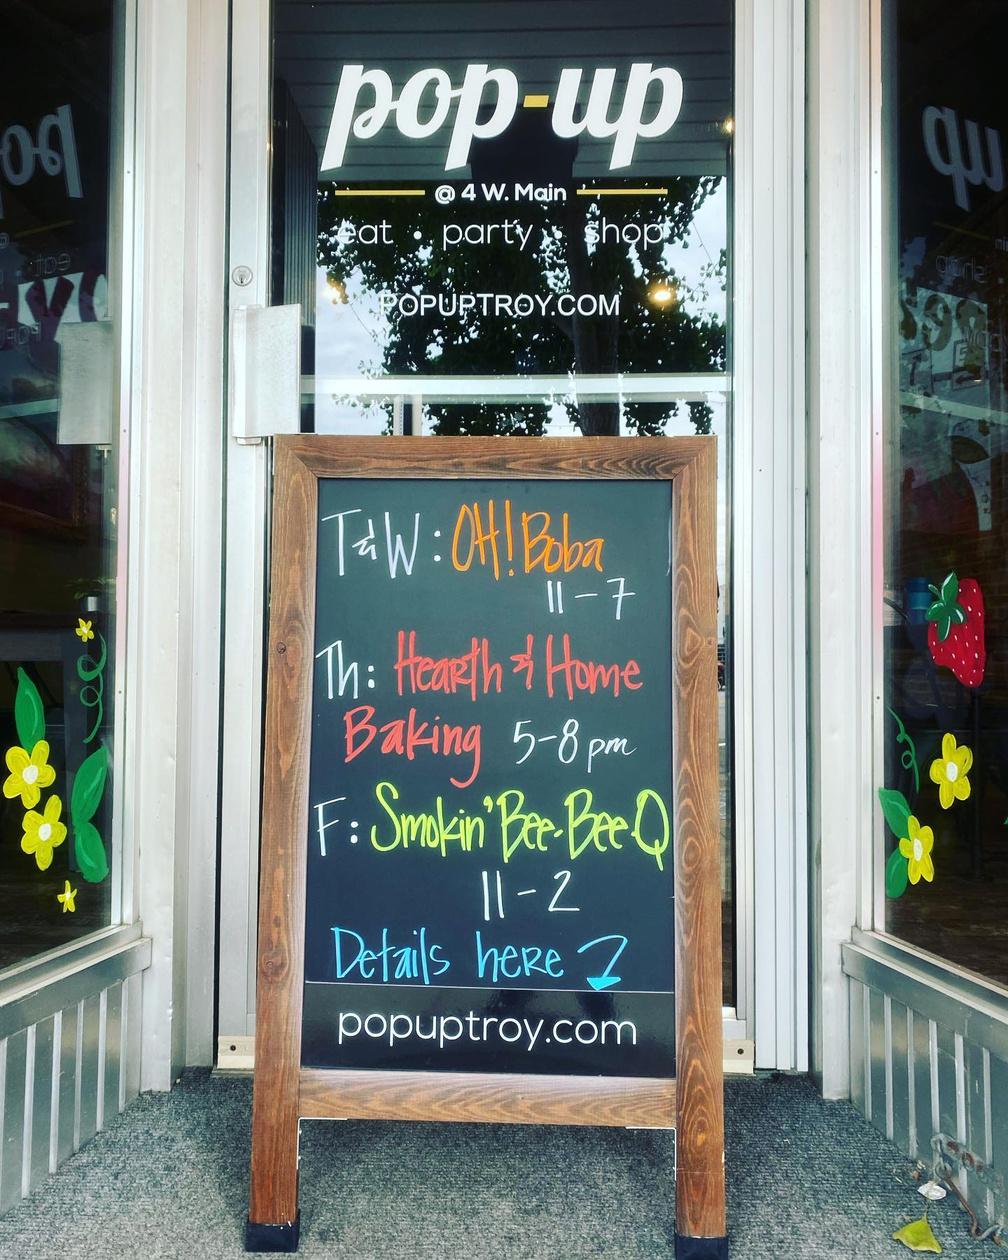 pop-up
@ 4 W. Main
eat • party • shop
POPUPTROY.COM
T&W: OH! Boba
11-7
Th: Hearth & Home
Baking 5-8pm
F: Smokin' Bee-Bee-Q
11-2
Details here
popuptroy.com